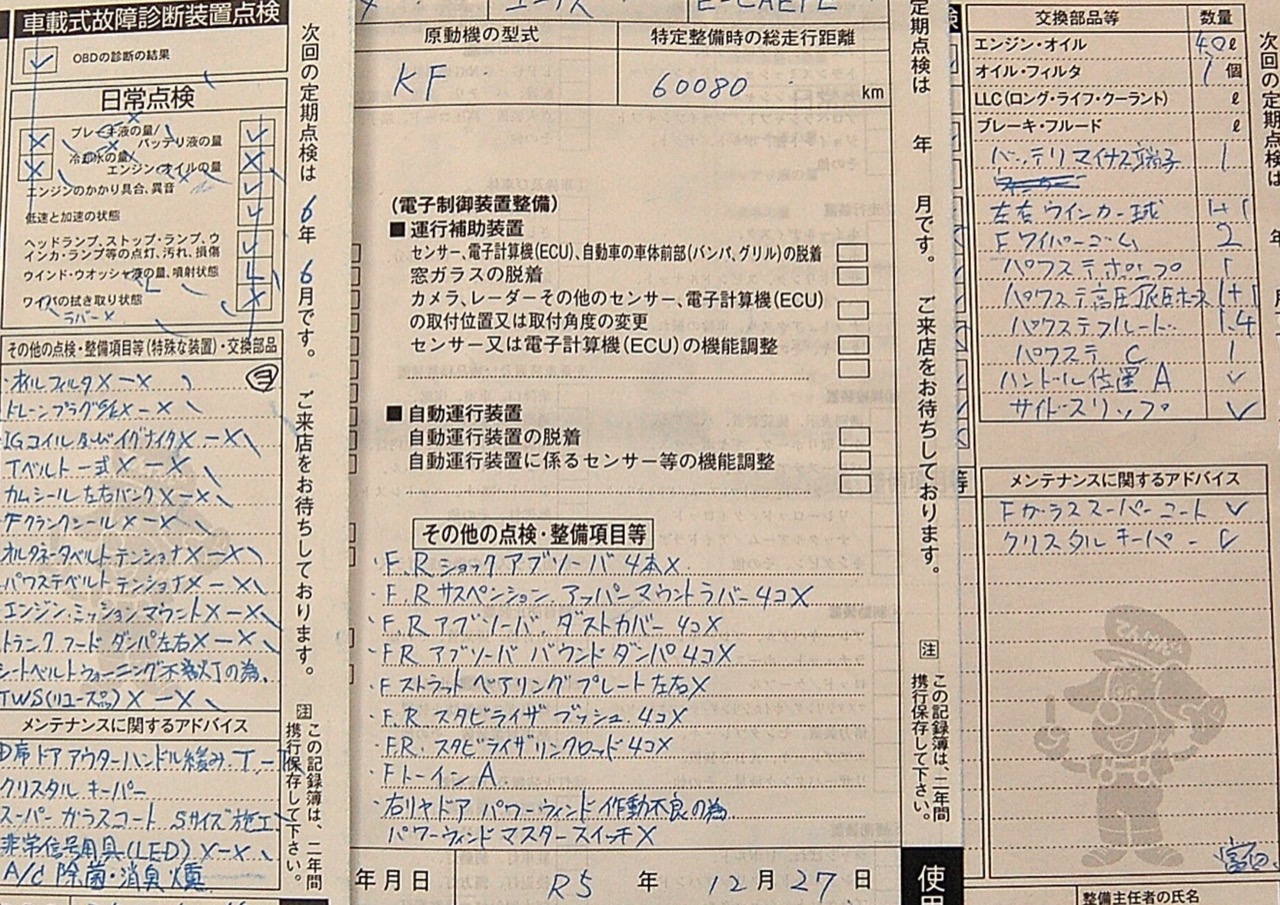 車載式故障診断装置点検
OBDの診断の結果
日常点検
ブレーキ液の量
バッテリ液の量
冷却水の量
エンジン・オイルの量
エンジンのかかり具合、異音
低速と加速の状態
ヘッドランプ、ストップ・ランプ、ウ
インカ・ランプ等の点灯、汚れ、損傷
ウインド・ウオッシャ液の量、噴射状態
ワイパの拭き取り状態
ラバーX
その他の点検・整備項目等(特殊な装置)・交換部品
・オイルフィルタX-X
・ドレーンプラグ X-X
IGコイル及びイグナイタX-X
TベルトX一式X-X
カムシール左右バンクX-X
・FクランクシールX-X
オルタネータベルトテンショナX-X
・パワステベルトテンショナX-X
エンジン・ミッションマウントX-X
トランクフードダンパ左右X-X
シートベルトウォーニング不点灯の為、
メンテナンスに関するアドバイス
D席ドアアウターハンドル緩み T-
クリスタルキーパー
スーパーガラスコート Sサイズ施工
非常信号用具(LED)X-X
A/C除菌・消臭
次回の定期点検は 6年 6月です。 ご来店をお待ちしております。
注 この記録簿は、二年間
携行保存して下さい。
原動機の型式
特定整備時の総走行距離
KF
60080 km
(電子制御装置整備)
■ 運行補助装置
センサー、電子計算機(ECU)、自動車の車体前部(バンパ、グリル)の脱着
窓ガラスの脱着
カメラ、レーダーその他のセンサー、電子計算機(ECU)
の取付位置又は取付角度の変更
センサー又は電子計算機(ECU)の機能調整
■ 自動運行装置
自動運行装置の脱着
自動運行装置に係るセンサー等の機能調整
その他の点検・整備項目等
・F.Rショックアブソーバ 4本X
・F.Rサスペンション アッパーマウントラバー4コX
・F.Rアブソーバ、ダストカバー 4コX
・F.R アブソーバ バウンドダンパ4コX
・Fストラットベアリングプレート左右X
・F.R スタビライザブッシュ 4コX
・F.R.スタビライザリンクロッド4コX
・Fトーイン A
・右リヤドア パワーウィンド作動不良の為
パワーウィンドマスタースイッチX
年月日 R5 年 12月27日
定期点検は 年 月です。 ご来店をお待ちしております。
注 この記録簿は、二年間
携行保存して下さい。
交換部品等 数量
エンジン・オイル 4.0ℓ
オイル・フィルタ 1個
LLC(ロング・ライフ・クーラント) ℓ
ブレーキ・フルード ℓ
バッテリマイナス端子 1
左右ウインカー球 1+1
Fワイパーゴム 2
パワステポンプ 1
パワステフルード 1.4
パワステ C 1
ハンドル位置A ✓
サイドスリップ ✓
メンテナンスに関するアドバイス
Fガラススーパーコート ✓
クリスタルキーパー ✓
整備主任者の氏名
次回の定期点検は